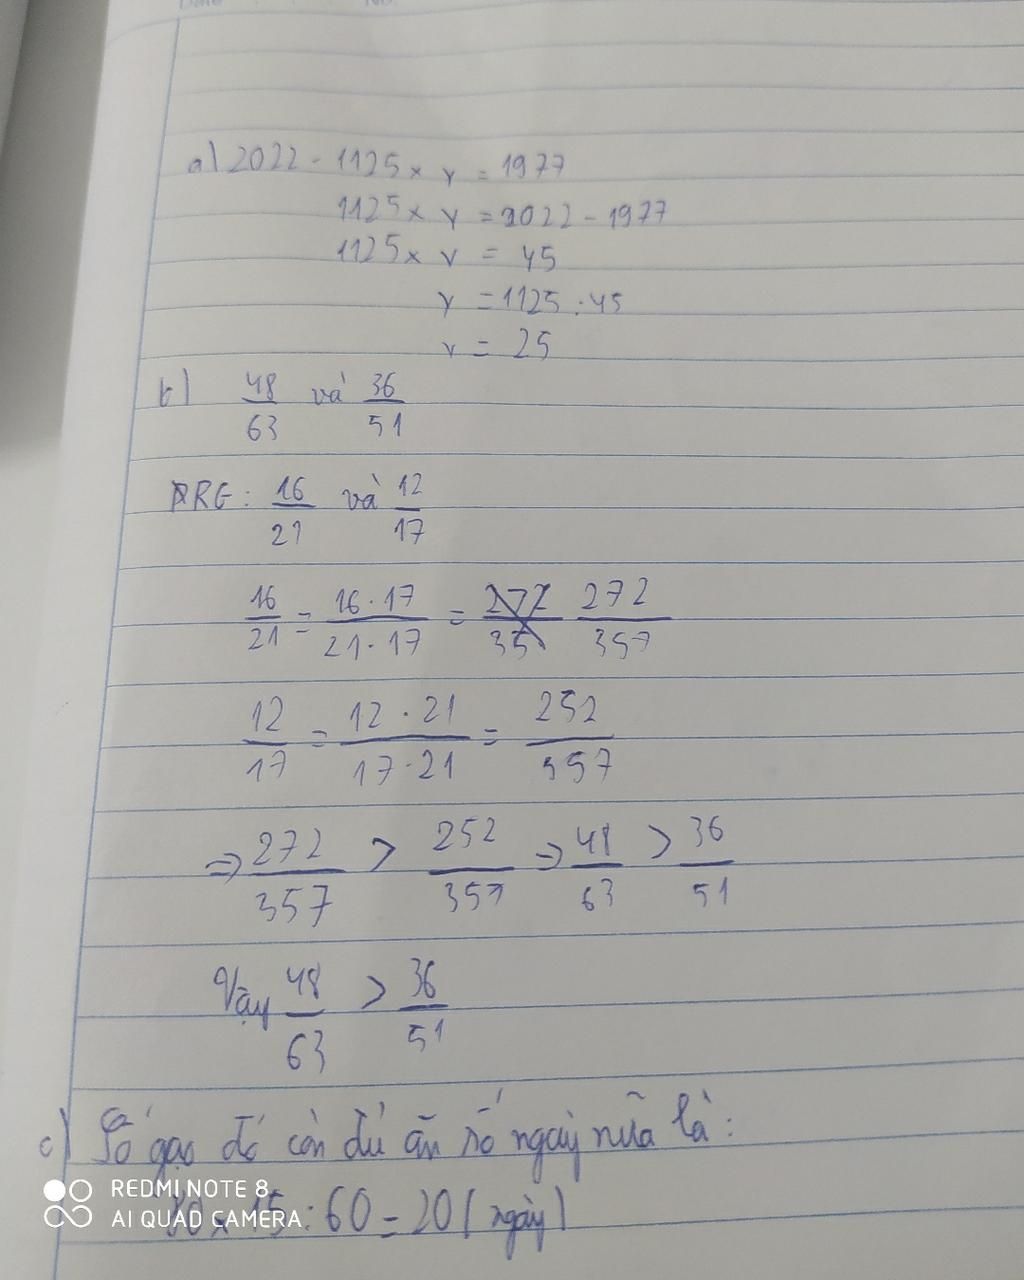 a) 2022 - 1125 x y = 1977
1125 x y = 2022 - 1977
1125 x y = 45
y = 1125 : 45
y = 25
b) 48/63 và 36/51
RG : 16/21 và 12/17
16/21 = 16 . 17 / 21 . 17 = 272/357
12/17 = 12 . 21 / 17 . 21 = 252/357
=> 272/357 > 252/357 => 48/63 > 36/51
Vậy 48/63 > 36/51
c) Số gạo đó còn đủ ăn số ngày nữa là :
80 x 15 : 60 = 20 ( ngày )
REDMI NOTE 8
AI QUAD CAMERA